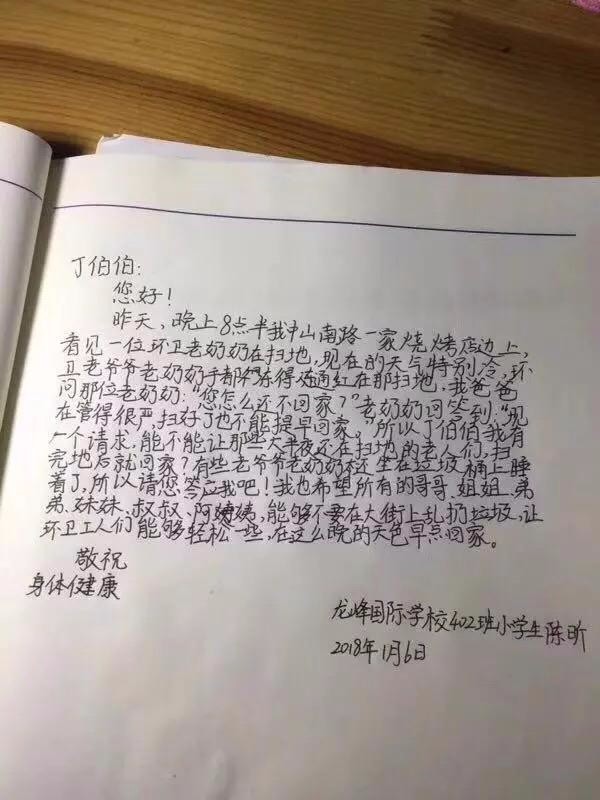 丁伯伯:
您好!
昨天,晚上8点半我中山南路一家烧烤店边上,
看见一位环卫老奶奶在扫地,现在的天气特别冷,环
卫老爷爷老奶奶手都冻得通红在那扫地,我爸爸
问那位老奶奶:“您怎么还不回家?”老奶奶回答到:“现
在管得很严,扫好了也不能提早回家。”所以丁伯伯我有
一个请求,能不能让那些大半夜还在扫地的老人们,扫
完地后就回家?有些老爷爷老奶奶坐在垃圾桶上睡
着了,所以请您答应我吧!我也希望所有的哥哥、姐姐、弟
弟、妹妹、叔叔、阿姨,能够不要在大街上乱扔垃圾,让
环卫工人们能够轻松一些,在这么晚的天色早点回家。
敬祝
身体健康
龙峰国际学校402班小学生陈昕
2018年1月6日